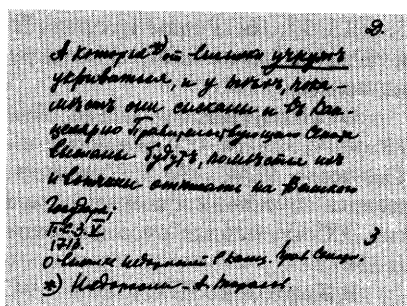 Д.
А которые *) от высылки учнутъ
укрываться, и у кого, пока-
мѣстъ они сысканы и въ Кан-
целярію Правительствующаго Сената
высланы будутъ, помѣстья ихъ
и вотчины отписать на Великаго
Государя;
П.С.З. V
171
О высылке недорослей въ Канц. Прав. Сената.
3
*) Недоросли – А.